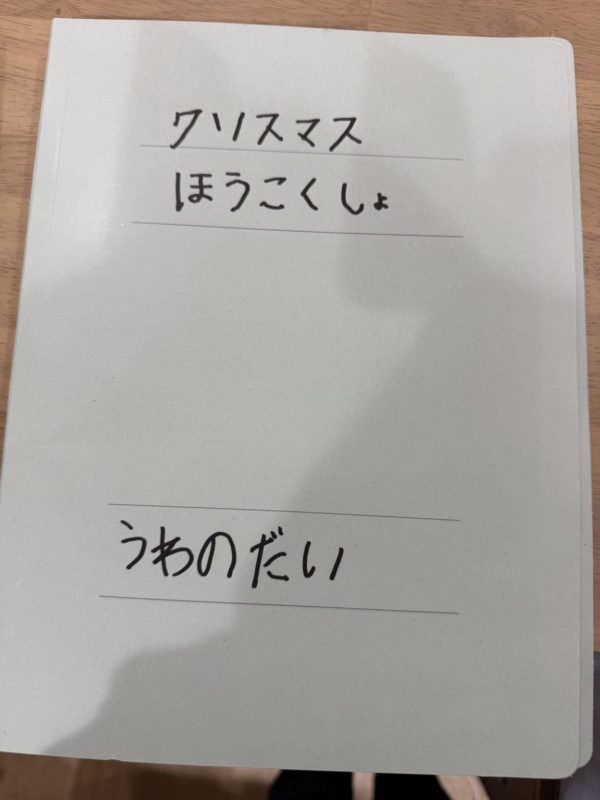 クリスマス
ほうこくしょ
うわのだい